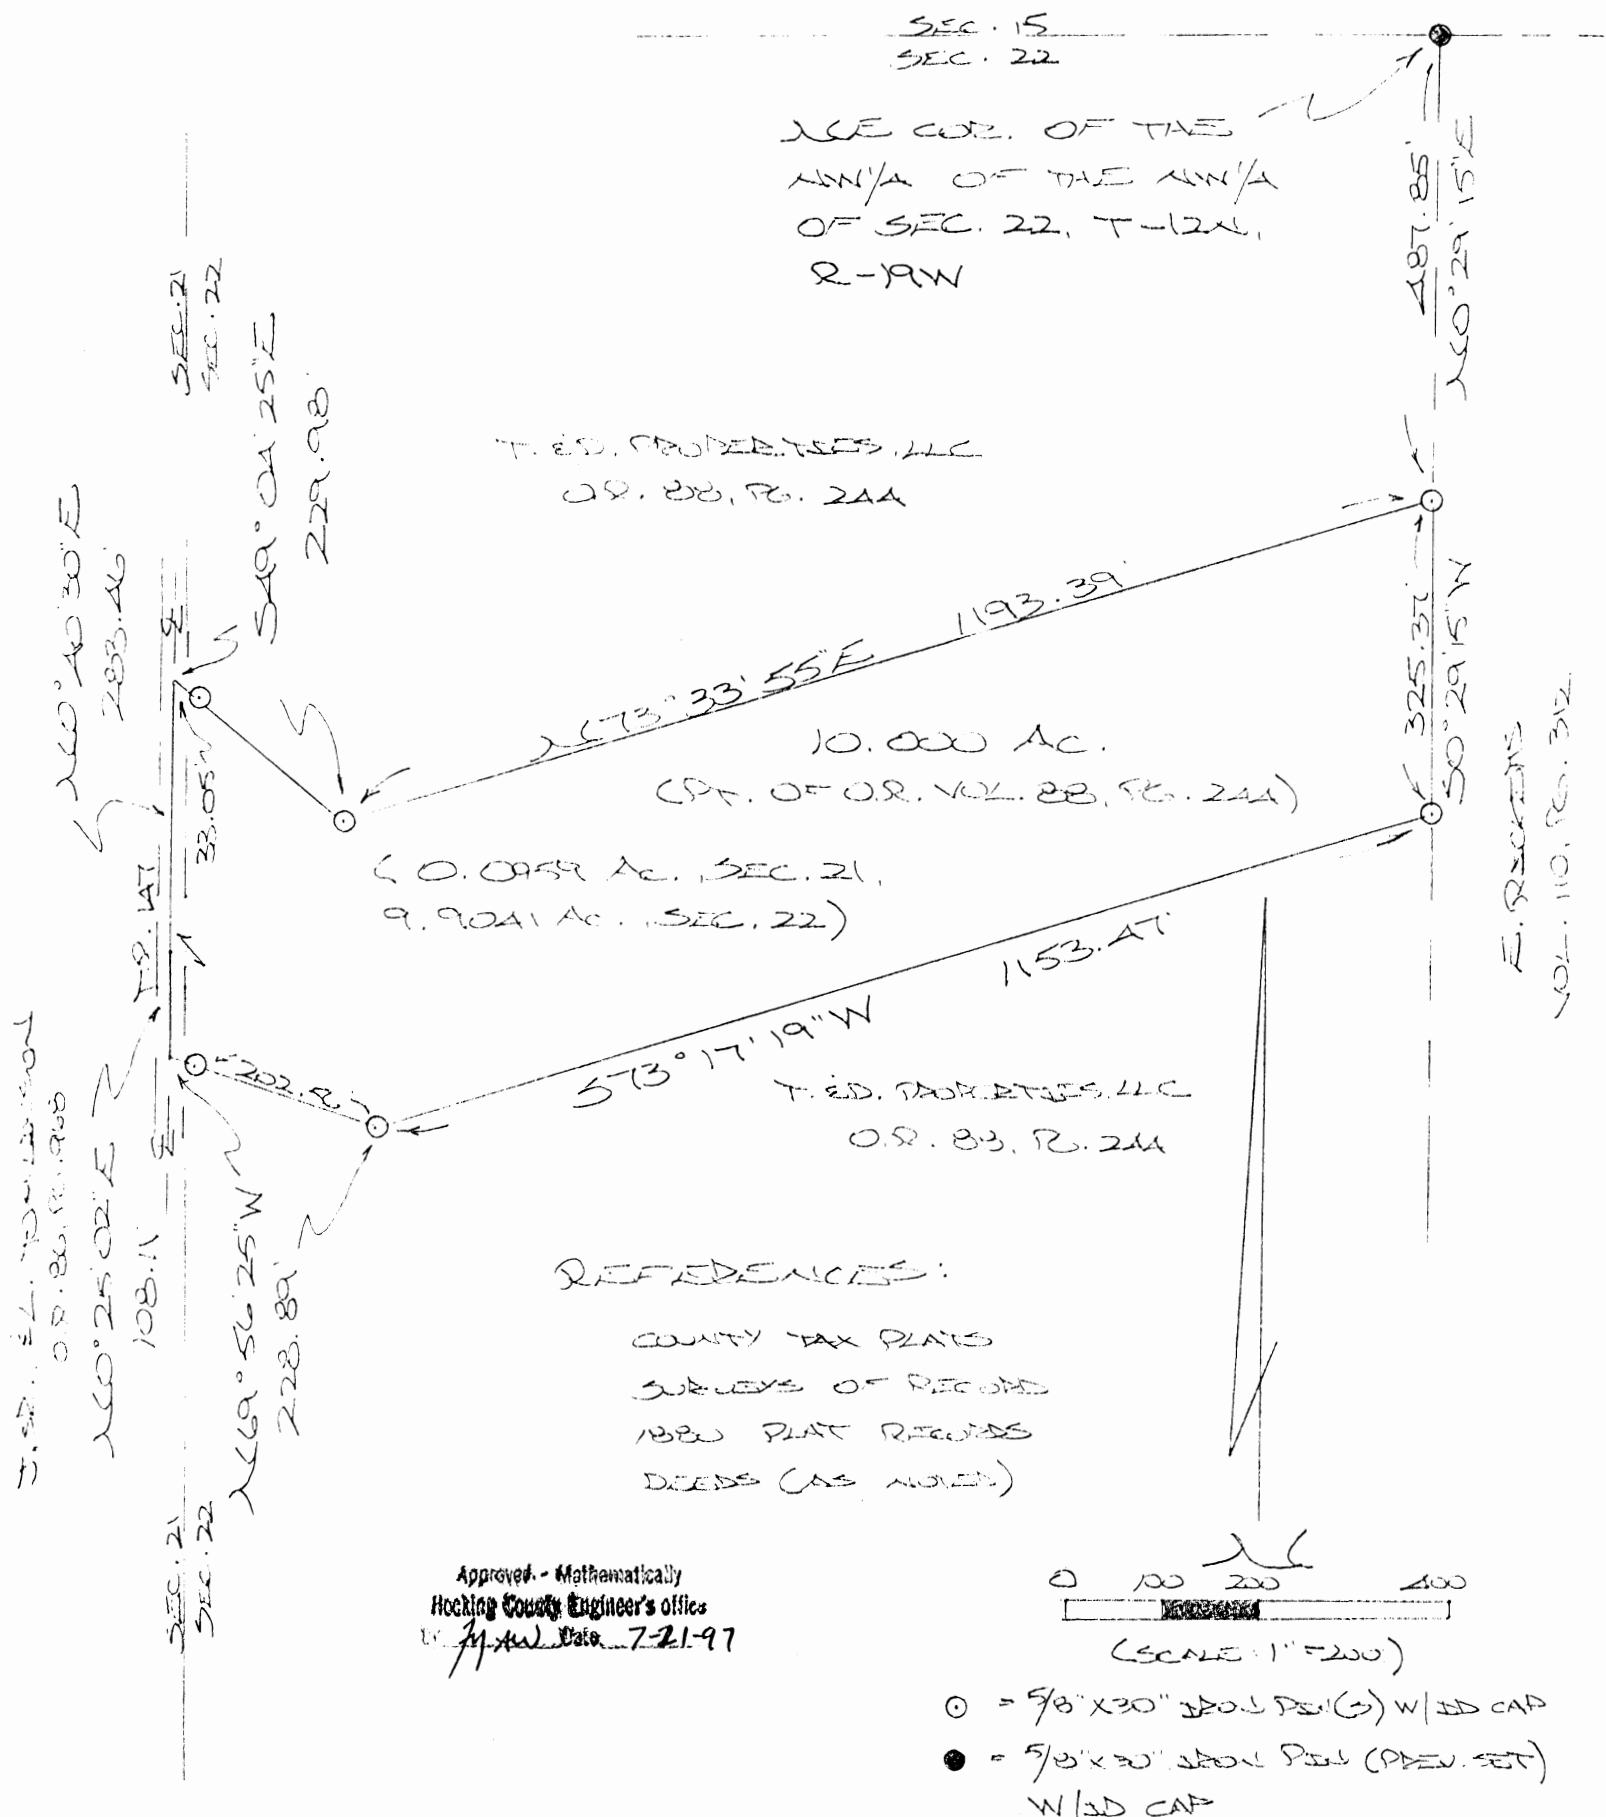 SEC. 15
SEC. 22
NE COR. OF THE
NW1/4 OF THE NW1/4
OF SEC. 22, T-12N,
R-19W
487.85'
N0°29'15"E
SEC. 21
SEC. 22
S49°04'25"E
229.98'
T. & D. PROPERTIES, LLC
O.R. 88, PG. 244
N0°40'30"E
283.46'
1193.39'
N73°33'55"E
325.37'
S0°29'15"W
10.000 AC.
(PT. OF O.R. VOL. 88, PG. 244)
33.05'
(0.0959 AC. SEC. 21,
9.9041 AC. SEC. 22)
E. RICKETTS
VOL. 110, PG. 312
T.R. 147
1153.47'
S73°17'19"W
T. & D. PROPERTIES, LLC
O.R. 88, PG. 244
O.R. 86, PG. 968
N0°25'02"E
108.11'
N69°56'25"W
228.89'
REFERENCES:
COUNTY TAX PLATS
SURVEYS OF RECORD
1880 PLAT RECORDS
DEEDS (AS NOTED)
SEC. 21
SEC. 22
Approved - Mathematically
Hocking County Engineer's office
Date 7-21-97
N
0 100 200 400
(SCALE: 1"=200')
= 5/8"X30" IRON PIN(S) W/ID CAP
= 5/8"X30" IRON PIN (PREV. SET)
W/ID CAP